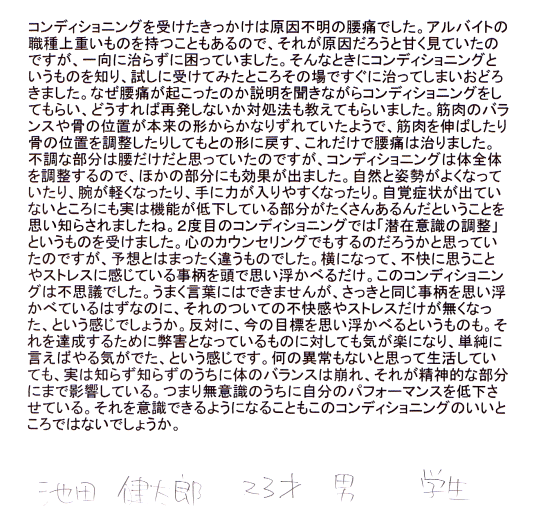 コンディショニングを受けたきっかけは原因不明の腰痛でした。アルバイトの
職種上重いものを持つこともあるので、それが原因だろうと甘く見ていたの
ですが、一向に治らずに困っていました。そんなときにコンディショニングと
いうものを知り、試しに受けてみたところその場ですぐに治ってしまいおどろ
きました。なぜ腰痛が起こったのか説明を聞きながらコンディショニングをし
てもらい、どうすれば再発しないか対処法も教えてもらいました。筋肉のバラ
ンスや骨の位置が本来の形からかなりずれていたようで、筋肉を伸ばしたり
骨の位置を調整したりしてもとの形に戻す、これだけで腰痛は治りました。
不調な部分は腰だけだと思っていたのですが、コンディショニングは体全体
を調整するので、ほかの部分にも効果が出ました。自然と姿勢がよくなって
いたり、腕が軽くなったり、手に力が入りやすくなったり。自覚症状が出てい
ないところにも実は機能が低下している部分がたくさんあるんだということを
思い知らされましたね。2度目のコンディショニングでは「潜在意識の調整」
というものを受けました。心のカウンセリングでもするのだろうかと思ってい
たのですが、予想とはまったく違うものでした。横になって、不快に思うこと
やストレスに感じている事柄を頭で思い浮かべるだけ。このコンディショニン
グは不思議でした。うまく言葉にはできませんが、さっきと同じ事柄を思い浮
かべているはずなのに、それのついての不快感やストレスだけが無くなっ
た、という感じでしょうか。反対に、今の目標を思い浮かべるというものも。そ
れを達成するために弊害となっているものに対しても気が楽になり、単純に
言えばやる気がでた、という感じです。何の異常もないと思って生活してい
ても、実は知らず知らずのうちに体のバランスは崩れ、それが精神的な部分
にまで影響している。つまり無意識のうちに自分のパフォーマンスを低下さ
せている。それを意識できるようになることもこのコンディショニングのいいと
ころではないでしょうか。
池田 健太郎 23才 男 学生